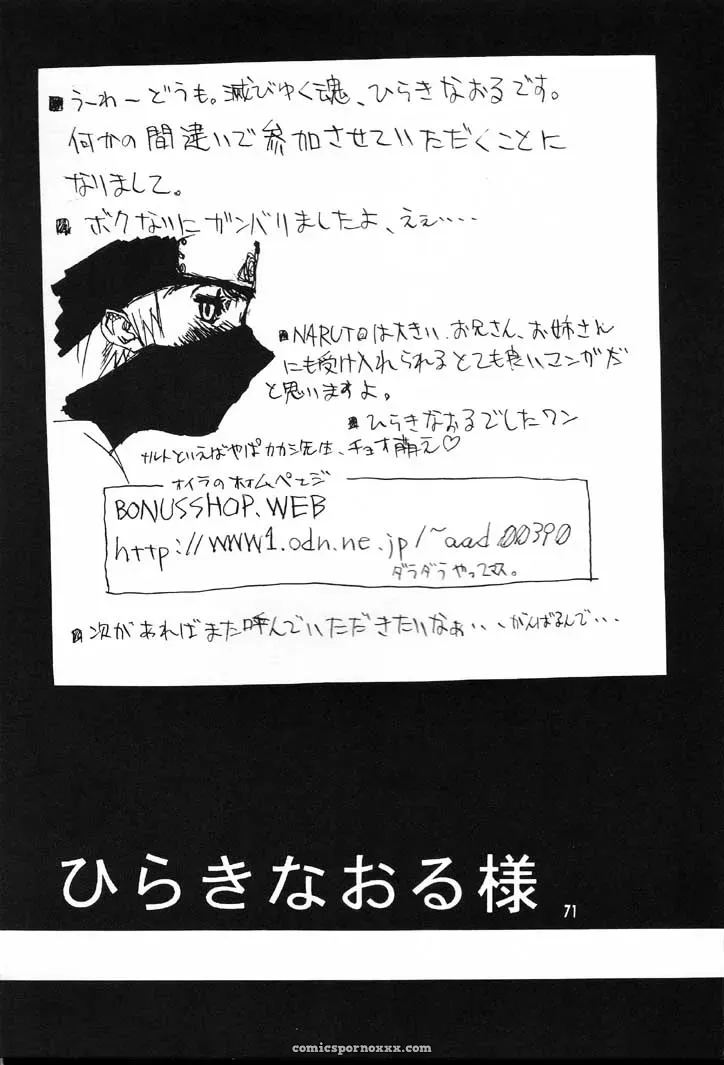 うーわーどうも。滅びゆく魂、ひらきなおるです。
何かの間違いで参加させていただくことに
なりまして。
ボクなりにガンバリましたよ、えぇ・・・・
NARUTOは大きい お兄さん、お姉さん
にも受け入れられるとても良いマンガだ
と思いますよ。
ひらきなおるでしたワン
ナルトといえばやぱカカシ先生、チョオ萌え♡
オイラのホォムペェジ
BONUSSHOP.WEB
http://www1.odn.ne.jp/~aad00390
ダラダラやってマス。
次があればまた呼んでいただきたいなぁ・・、がんばるんで・・・
ひらきなおる様
71
comicspornoxxx.com